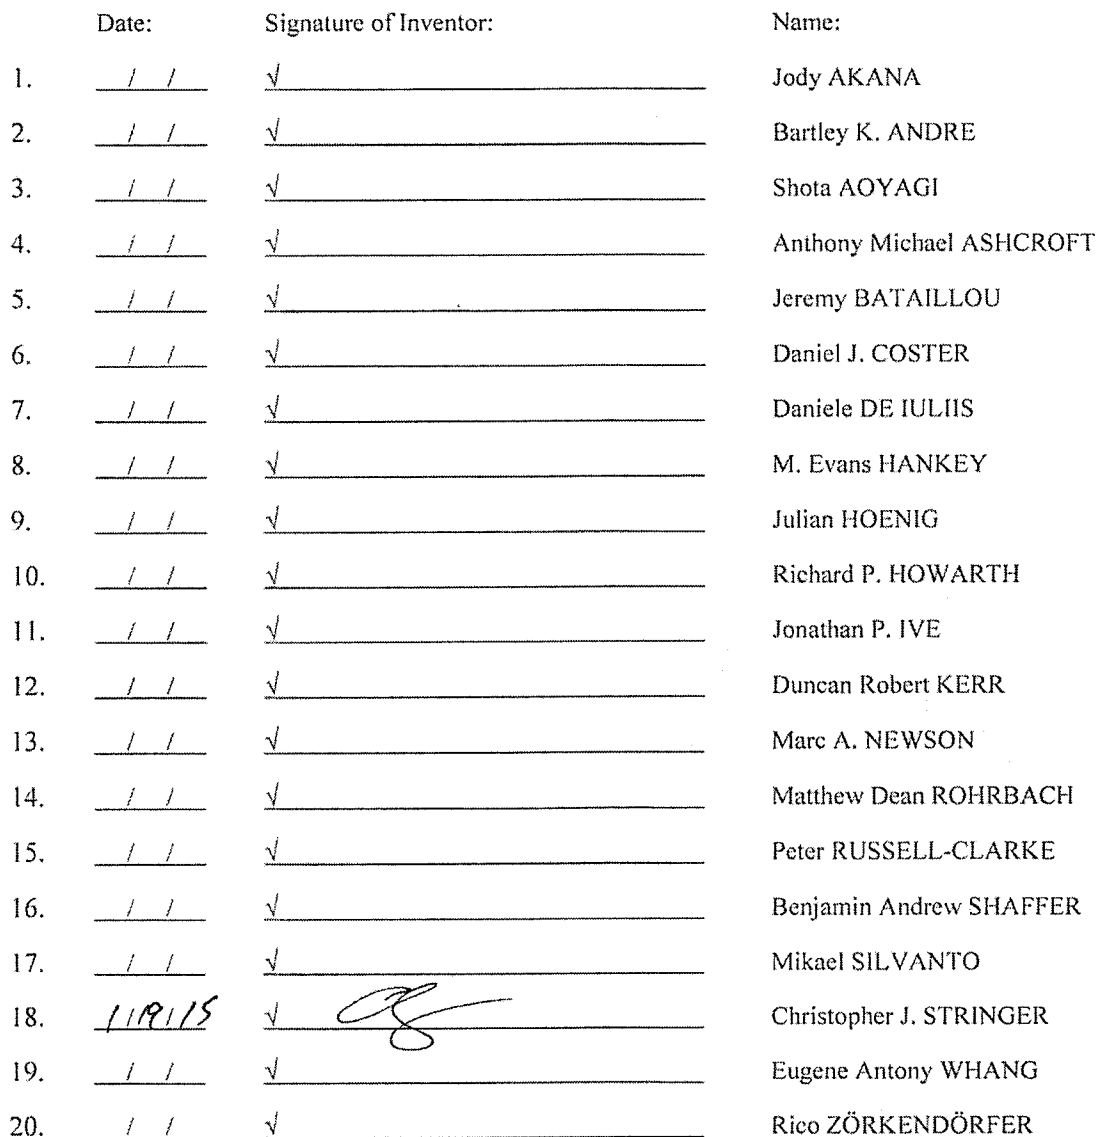 Date: Signature of Inventor: Name:
1. / / √ Jody AKANA
2. / / √ Bartley K. ANDRE
3. / / √ Shota AOYAGI
4. / / √ Anthony Michael ASHCROFT
5. / / √ Jeremy BATAILLOU
6. / / √ Daniel J. COSTER
7. / / √ Daniele DE IULIIS
8. / / √ M. Evans HANKEY
9. / / √ Julian HOENIG
10. / / √ Richard P. HOWARTH
11. / / √ Jonathan P. IVE
12. / / √ Duncan Robert KERR
13. / / √ Marc A. NEWSON
14. / / √ Matthew Dean ROHRBACH
15. / / √ Peter RUSSELL-CLARKE
16. / / √ Benjamin Andrew SHAFFER
17. / / √ Mikael SILVANTO
18. 1/19/15 √ Christopher J. STRINGER
19. / / √ Eugene Antony WHANG
20. / / √ Rico ZÖRKENDÖRFER